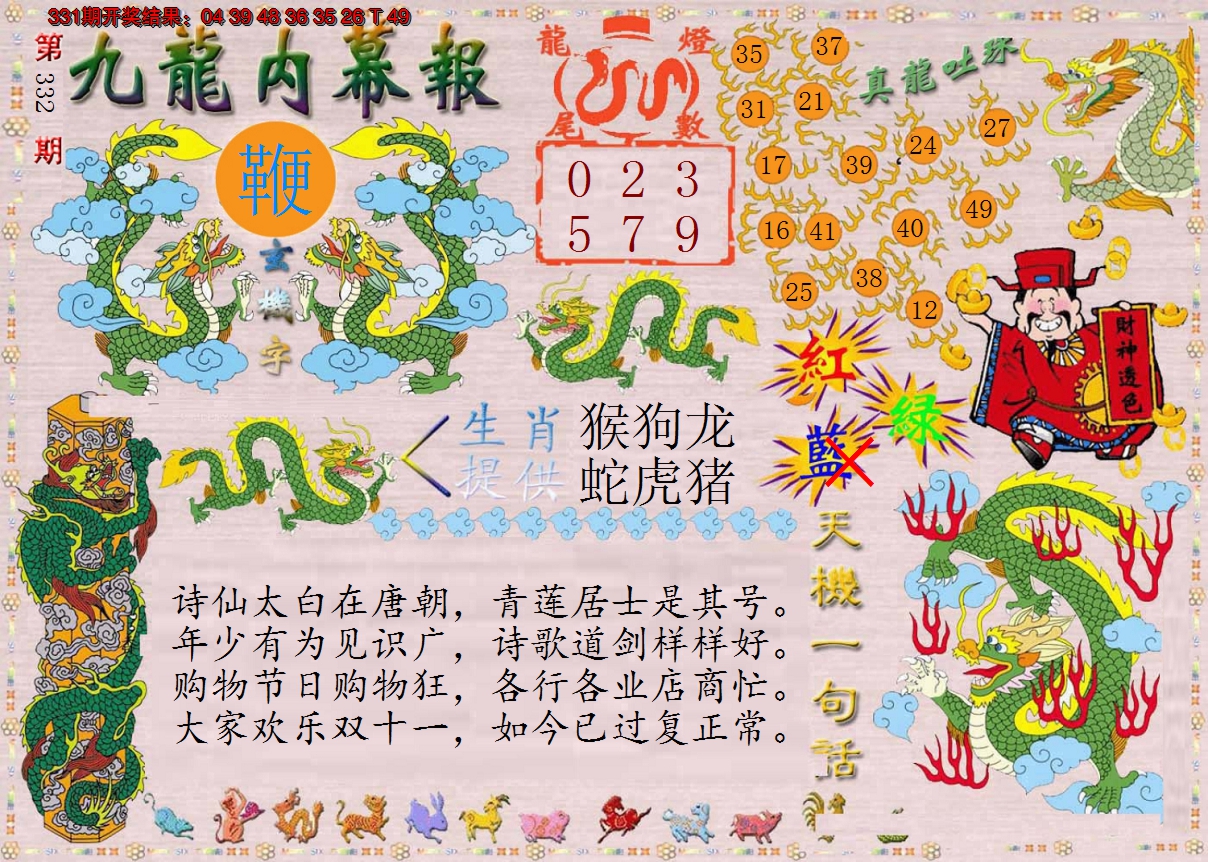 331期开奖结果：04 39 48 36 35 26 T 49
第332期
九龍内幕報
鞭
玄機字
龍燈
尾數
0 2 3
5 7 9
真龍吐珠
35 37
31 21
17 39 24 27
16 41 40 49
25 38 12
財神透色
紅
綠
藍
生肖 猴狗龙
提供 蛇虎猪
天機一句话
诗仙太白在唐朝，青莲居士是其号。
年少有为见识广，诗歌道剑样样好。
购物节日购物狂，各行各业店商忙。
大家欢乐双十一，如今已过复正常。